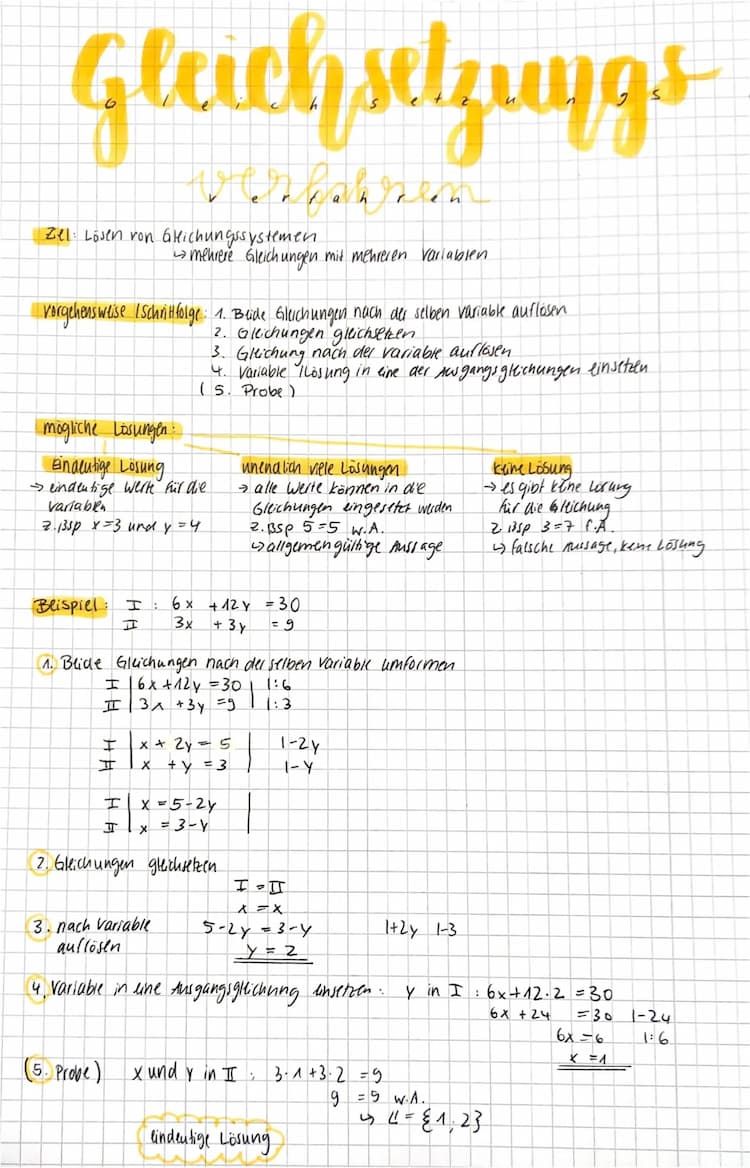 Gleichsetzungs
Gleichsetzungs
verfahren
verfahren
Ziel: Lösen von Gleichungssystemen
↳ mehrere Gleichungen mit mehreren Variablen
Vorgehensweise / Schrittfolge: 1. Beide Gleichungen nach der selben Variable auflösen
2. Gleichungen gleichsetzen
3. Gleichung nach der Variable auflösen
4. Variable / Lösung in eine der Ausgangsgleichungen einsetzen
(5. Probe)
mögliche Lösungen:
Eindeutige Lösung
→ eindeutige Werte für die
Variablen
z.Bsp x=3 und y=4
unendlich viele Lösungen
→ alle Werte können in die
Gleichungen eingesetzt werden
z.Bsp 5=5 w.A.
↳ allgemengültige Aussage
keine Lösung
→ es gibt keine Lösung
für die Gleichung
z.Bsp 3=7 f.A.
↳ falsche Aussage, keine Lösung
Beispiel: I : 6x +12y = 30
II 3x +3y = 9
1. Beide Gleichungen nach der selben Variable umformen
I | 6x+12y =30 | 1:6
II | 3x +3y =9 | 1:3
I | x + 2y = 5 | 1-2y
II | x +y =3 | 1-y
I | x =5-2y |
II | x =3-y |
2. Gleichungen gleichsetzen
I = II
x = x
3. nach Variable 5-2y =3-y 1+2y 1-3
auflösen y = 2
4. Variable in eine Ausgangsgleichung einsetzen: y in I : 6x+12·2 =30
6x +24 =30 1-24
6x =6 1:6
x =1
(5. Probe) x und y in II : 3·1+3·2 =9
9 =9 w.A.
↳ L = {1;2}
eindeutige Lösung